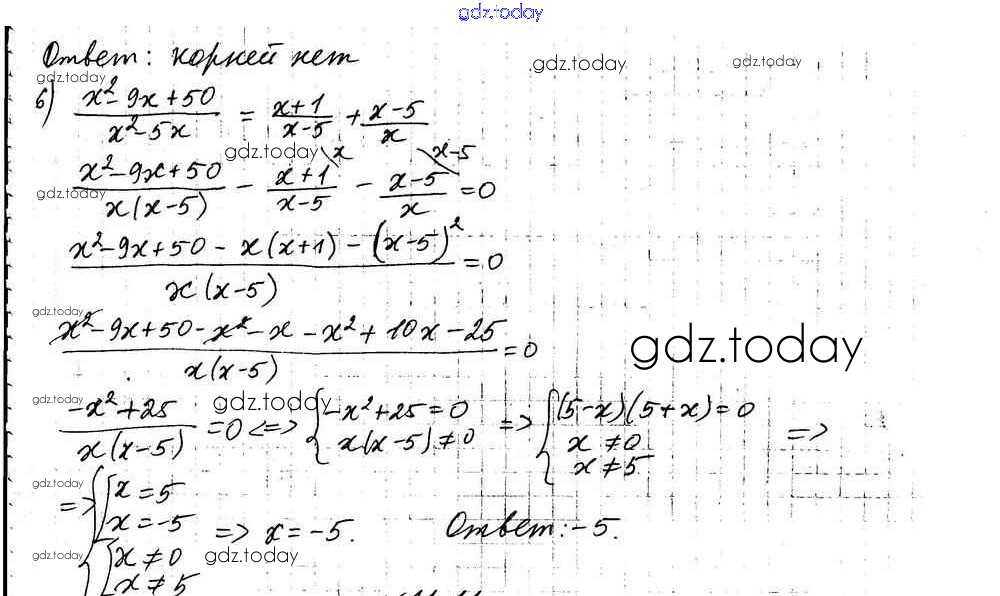 gdz.today
Ответ: корней нет
gdz.today gdz.today gdz.today
б) (x²-9x+50)/(x²-5x) = (x+1)/(x-5) + (x-5)/x
gdz.today
(x²-9x+50)/(x(x-5)) - (x+1)/(x-5) \x - (x-5)/x \x-5 = 0
gdz.today
(x²-9x+50 - x(x+1) - (x-5)²)/(x(x-5)) = 0
gdz.today
(x²-9x+50-x²-x-x²+10x-25)/(x(x-5)) = 0
gdz.today
gdz.today gdz.today
(-x²+25)/(x(x-5)) = 0 <=> { -x²+25=0 => { (5-x)(5+x)=0
x(x-5)≠0 x≠0 =>
x≠5
gdz.today
=> { [ x=5
x=-5 => x=-5. Ответ: -5.
gdz.today gdz.today
{ x≠0
x≠5